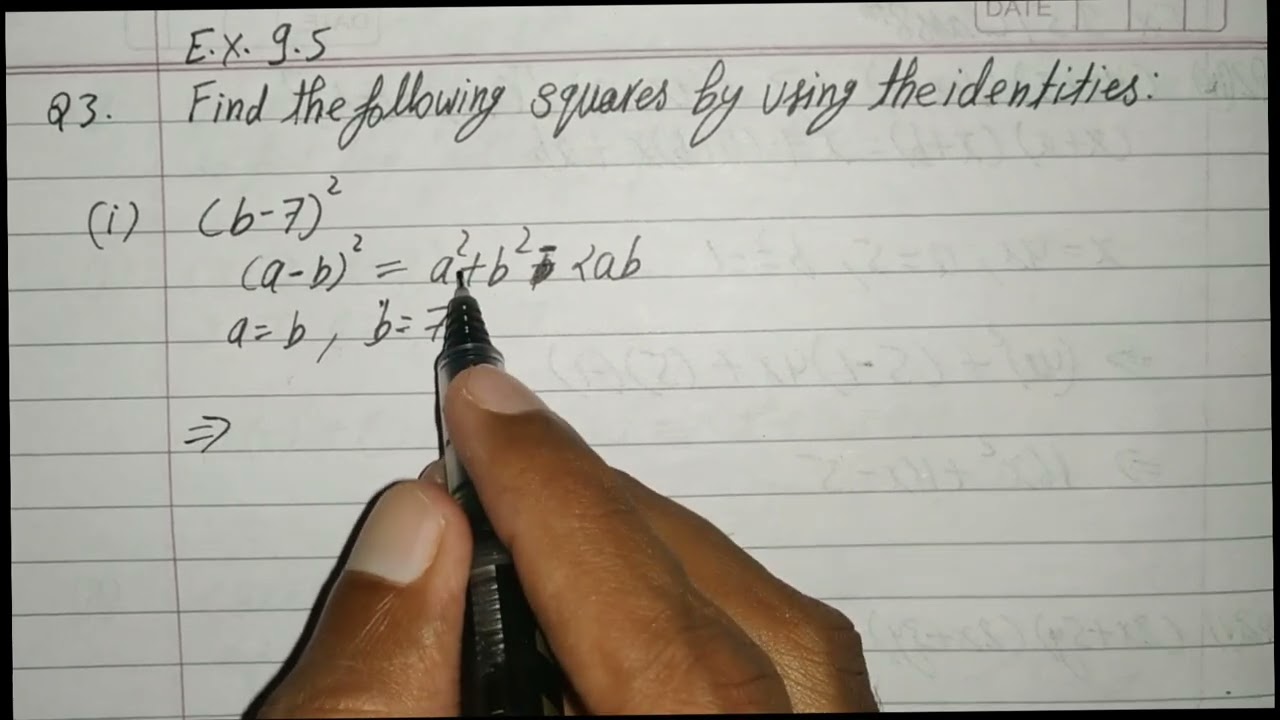 DATE
Ex. 9.5
Q3. Find the following squares by using the identities:
(i) (b-7)²
(a-b)² = a²+b²- 2ab
a=b, b=7
⇒